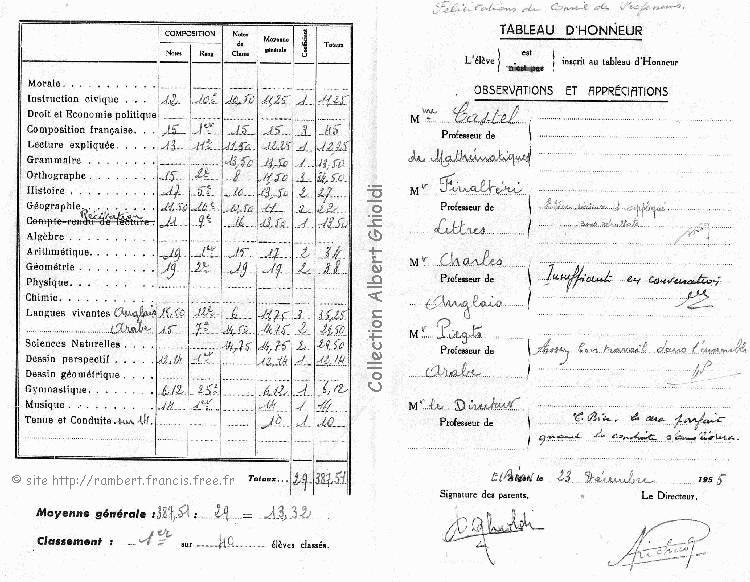 COMPOSITION
Notes Rang Notes de Classe Moyenne générale Coefficient Totaux
Morale
Instruction civique 12 10e 10,50 11,25 1 11,25
Droit et Economie politique
Composition française 15 1er 15 15 3 45
Lecture expliquée 13 11e 11,50 12,25 1 12,25
Grammaire 13,50 13,50 1 13,50
Orthographe 15 2e 8 11,50 2
Histoire 17 5e 10 13,50 2 27
Géographie 11,50 10e 10,50 11 2 22
Récitation
Compte-rendu de lecture 11 9e 16 13,50 1 13,50
Algèbre
Arithmétique 19 1er 15 17 2 34
Géométrie 19 2e 19 19 2 38
Physique
Chimie
Langues vivantes Anglais 12e 6 11,75 3 35,25
Arabe 15 7e 14,50 14,75 2 29,50
Sciences Naturelles 14,75 14,75 2 29,50
Dessin perspectif 12,14 1er 12,14 1 12,14
Dessin géométrique
Gymnastique 6,12 25e 6,12 1 6,12
Musique 14 1 14
Tenue et Conduite sur 10 1 10
Totaux 29 387,51
© site http://rambert.francis.free.fr
Moyenne générale : 387,51 : 29 = 13,32
Classement : 1er sur 40 élèves classés.
Collection Albert Ghioldi
Félicitations du Conseil des Professeurs.
TABLEAU D'HONNEUR
L'élève est n'est pas inscrit au tableau d'Honneur
OBSERVATIONS ET APPRÉCIATIONS
Mme Castel
Professeur de
de Mathématiques
Mr Finaltéri
Professeur de
Lettres
Mr Charles
Professeur de
Anglais
Insuffisant en conversation
Mr
Professeur de
Arabe
Assez bon travail dans l'ensemble
Mr le Directeur
Professeur de
T. Bien. Ce sera parfait
quand la conduite s'améliorera.
le 23 Décembre 1955
Signature des parents, Le Directeur,